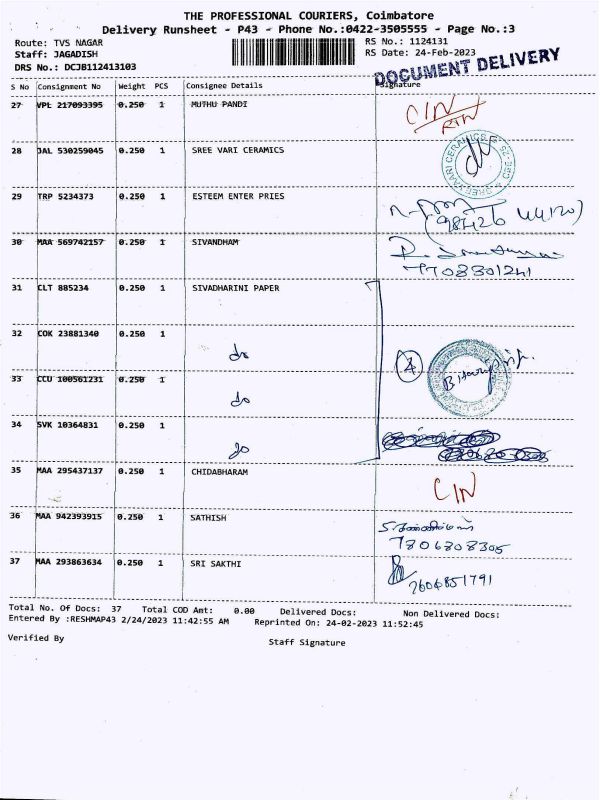 THE PROFESSIONAL COURIERS, Coimbatore
Delivery Runsheet - P43 - Phone No.:0422-3505555 - Page No.:3
Route: TVS NAGAR RS No.: 1124131
Staff: JAGADISH RS Date: 24-Feb-2023
DRS No.: DCJB112413103
DOCUMENT DELIVERY
S No Consignment No Weight PCS Consignee Details Signature
27 VPL 217093395 0.250 1 MUTHU PANDI CIN
RTN
28 JAL 530259045 0.250 1 SREE VARI CERAMICS
29 TRP 5234373 0.250 1 ESTEEM ENTER PRIES
30 MAA 569742157 0.250 1 SIVANDHAM
7708301241
31 CLT 885234 0.250 1 SIVADHARINI PAPER
32 COK 23881340 0.250 1 do
4
33 CCU 100561231 0.250 1 do
34 SVK 10364831 0.250 1 do
35 MAA 295437137 0.250 1 CHIDABHARAM CIN
36 MAA 942393915 0.250 1 SATHISH
7806808305
37 MAA 293863634 0.250 1 SRI SAKTHI
Total No. Of Docs: 37 Total COD Amt: 0.00 Delivered Docs: Non Delivered Docs:
Entered By :RESHMAP43 2/24/2023 11:42:55 AM Reprinted On: 24-02-2023 11:52:45
Verified By Staff Signature